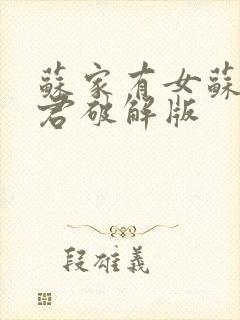 蘇家有女蘇
君破解版
段雄義